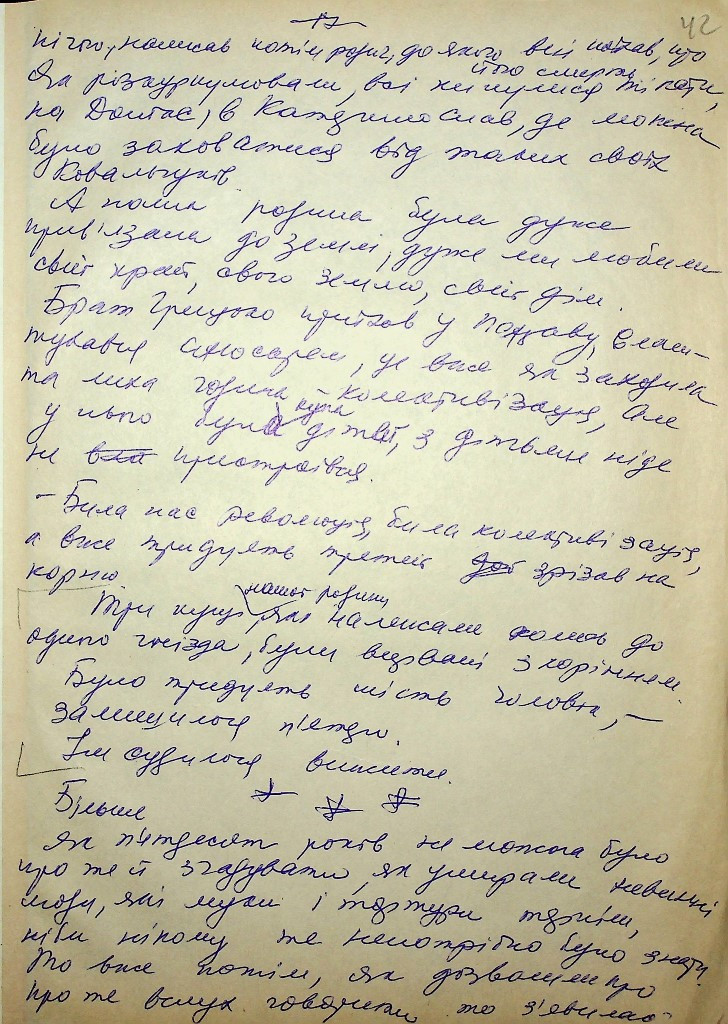 17
42
нічого, написав потім родич, до якого він поїхав, про
його смерть
Як розкуркулювали, всі кинулися тікати,
на Донбас, в Катеринослав, де можна
було заховатися від таких своїх
Ковальчуків
А наша родина була дуже
прив'язана до землі, дуже ми любили
свій край, свою землю, свій дім.
Брат Грицько приїхав у Полтаву, влаш-
тувався слюсарем, це вже як заходила
та лиха година – колективізація, але
у нього була купа дітей, з дітьми ніде
не пристроївся.
– Била нас революція, била колективізація,
а вже тридцять третій зрізав на
корню.
Три кущі нашої родини, які належали колись до
одного гнізда, були вирвані з корінням.
Було тридцять шість чоловік, –
залишилося п'ятеро.
Їм судилося вижити.
* * *
Більше
як п'ятдесят років не можна було
про те й згадувати, як умирали невинні
люди, які муки і тортури терпіли,
ніби нікому те непотрібно було знати.
То вже потім, як дозволили про
про те вслух говорити, то з'явилась